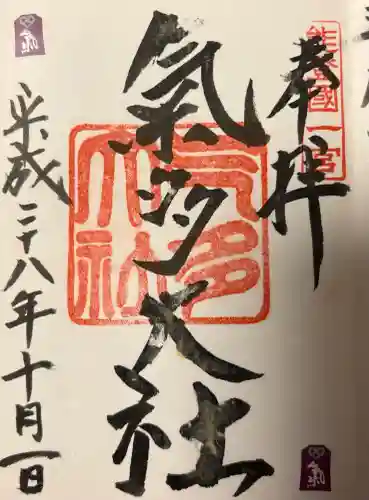 奉拝
能登國一宮
氣多大社
氣多大社
平成二十八年十月一日